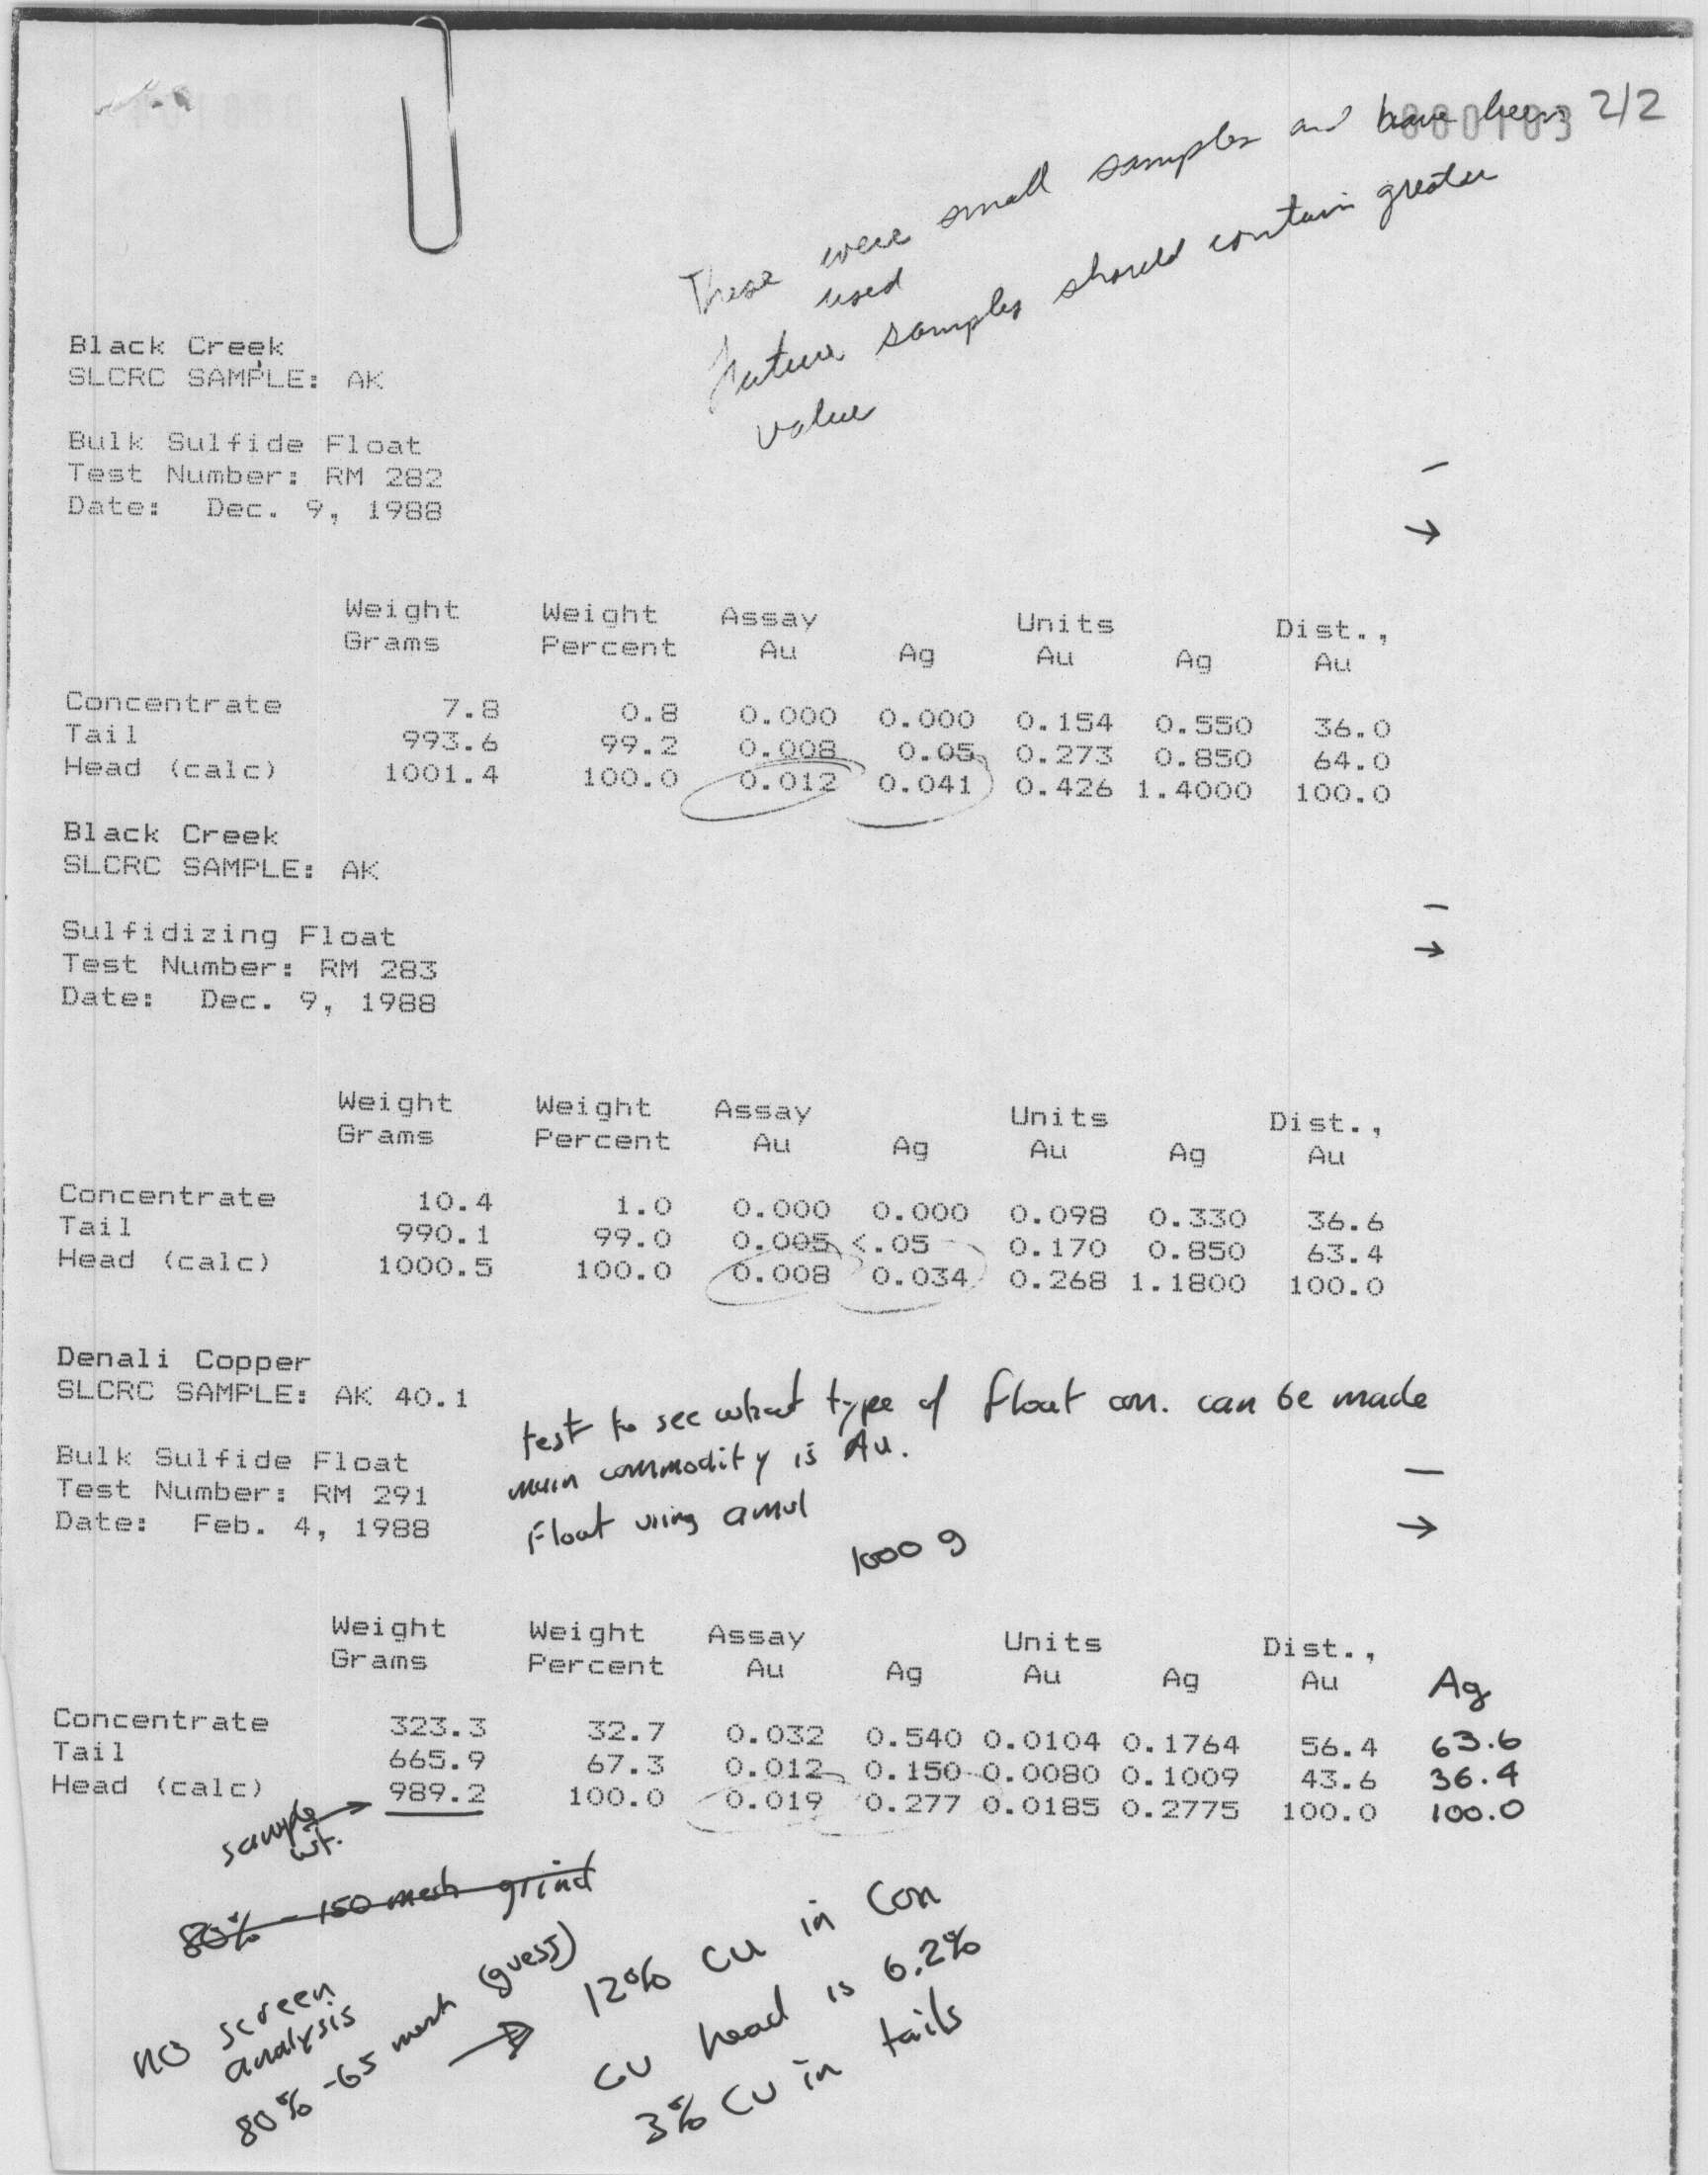 000103 2/2
These were small samples and have been
used
Future samples should contain greater
value
Black Creek
SLCRC SAMPLE: AK
Bulk Sulfide Float
Test Number: RM 282
Date: Dec. 9, 1988
→
Weight Weight Assay Units Dist.,
Grams Percent Au Ag Au Ag Au
Concentrate 7.8 0.8 0.000 0.000 0.154 0.550 36.0
Tail 993.6 99.2 0.008 0.05 0.273 0.850 64.0
Head (calc) 1001.4 100.0 0.012 0.041 0.426 1.4000 100.0
Black Creek
SLCRC SAMPLE: AK
Sulfidizing Float
Test Number: RM 283
Date: Dec. 9, 1988
→
Weight Weight Assay Units Dist.,
Grams Percent Au Ag Au Ag Au
Concentrate 10.4 1.0 0.000 0.000 0.098 0.330 36.6
Tail 990.1 99.0 0.005 <.05 0.170 0.850 63.4
Head (calc) 1000.5 100.0 0.008 0.034 0.268 1.1800 100.0
Denali Copper
SLCRC SAMPLE: AK 40.1
test to see what type of float con. can be made
main commodity is Au.
Float using
1000 g
Bulk Sulfide Float
Test Number: RM 291
Date: Feb. 4, 1988
→
Weight Weight Assay Units Dist.,
Grams Percent Au Ag Au Ag Au Ag
Concentrate 323.3 32.7 0.032 0.540 0.0104 0.1764 56.4 63.6
Tail 665.9 67.3 0.012 0.150 0.0080 0.1009 43.6 36.4
Head (calc) 989.2 100.0 0.019 0.277 0.0185 0.2775 100.0 100.0
sample →
wt.
80% -150 mesh grind
NO screen
analysis
80% -65 mesh (guess)
→ 12% Cu in Con
Cu head is 6.2%
3% Cu in tails